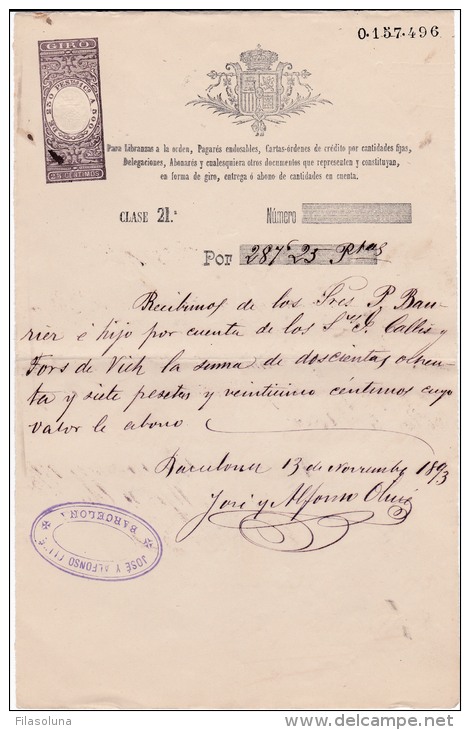 0.157.496
GIRO
DE 250 PESETAS A 500
25 CENTIMOS
Para Libranzas a la orden, Pagarés endosables, Cartas-órdenes de crédito por cantidades fijas,
Delegaciones, Abonarés y cualesquiera otros documentos que representen y constituyan,
en forma de giro, entrega ó abono de cantidades en cuenta.
CLASE 21.ª Número
Por 287' 25 Ptas
Recibimos de los Sres P. Bau-
rier é hijo por cuenta de los Sres P. Calbis y
Fors de Vich la suma de doscientas ochen-
ta y siete pesetas y veinticinco centimos cuyo
valor le abono
Barcelona 13 de Noviembre 1893
José y Alfonso
JOSÉ Y ALFONSO
BARCELONA
Filasoluna
www.delcampe.net